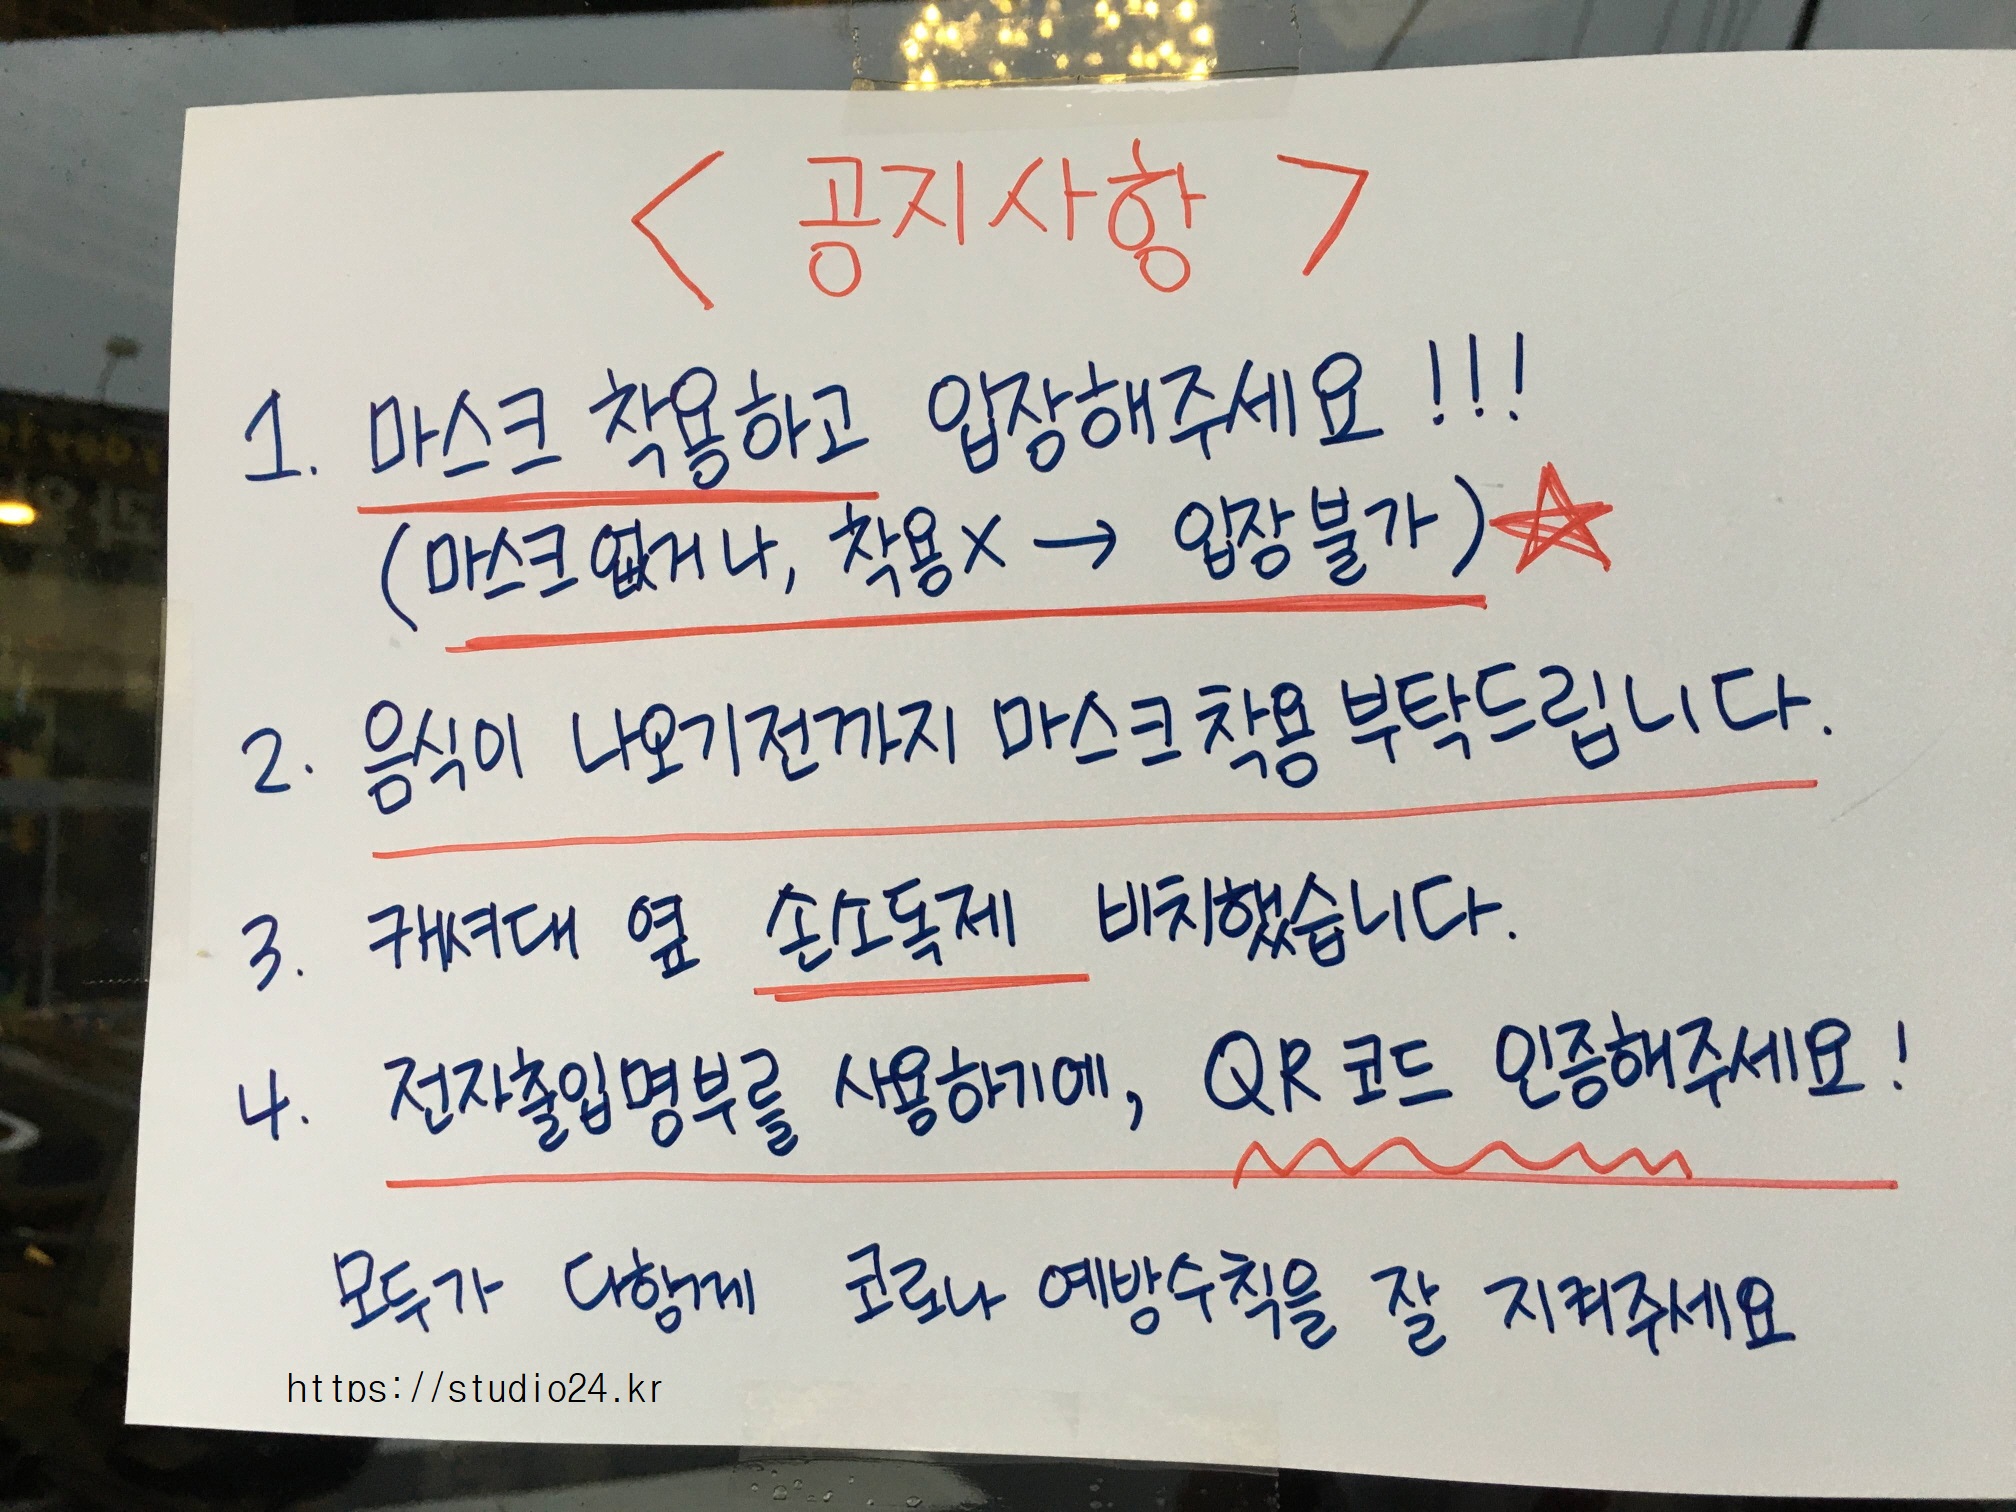 < 공지사항 >
1. 마스크 착용하고 입장해주세요 !!!
(마스크 없거나, 착용X → 입장불가)
2. 음식이 나오기전까지 마스크착용 부탁드립니다.
3. 캐셔대 옆 손소독제 비치했습니다.
4. 전자출입명부를 사용하기에, QR코드 인증해주세요!
모두가 다함께 코로나 예방수칙을 잘 지켜주세요
https://studio24.kr